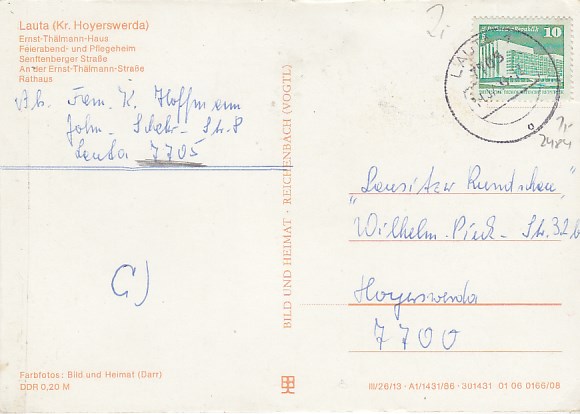 Lauta (Kr. Hoyerswerda)
Ernst-Thälmann-Haus
Feierabend- und Pflegeheim
Senftenberger Straße
An der Ernst-Thälmann-Straße
Rathaus
Ab. Fam. K. Hoffmann
John.- Schehr- Str. 8
Lauta 7705
C)
BILD UND HEIMAT · REICHENBACH (VOGTL)
10
LAUTA
7705
"Lausitzer Rundschau"
Wilhelm-Pieck-Str. 32b
Hoyerswerda
7700
Farbfotos: Bild und Heimat (Darr)
DDR 0,20 M
III/26/13 · A1/1431/86 · 301431 01 06 0166/08